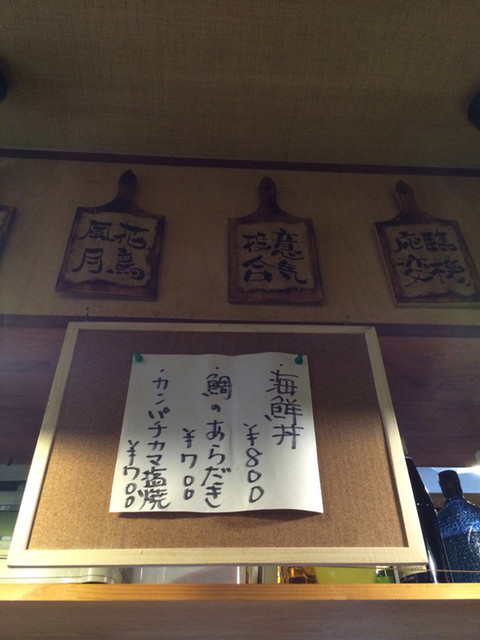 臨機
応変
意気
投合
花鳥
風月
・海鮮丼
¥800
・鯛のあらだき
¥700
・カンパチカマ塩焼
¥700